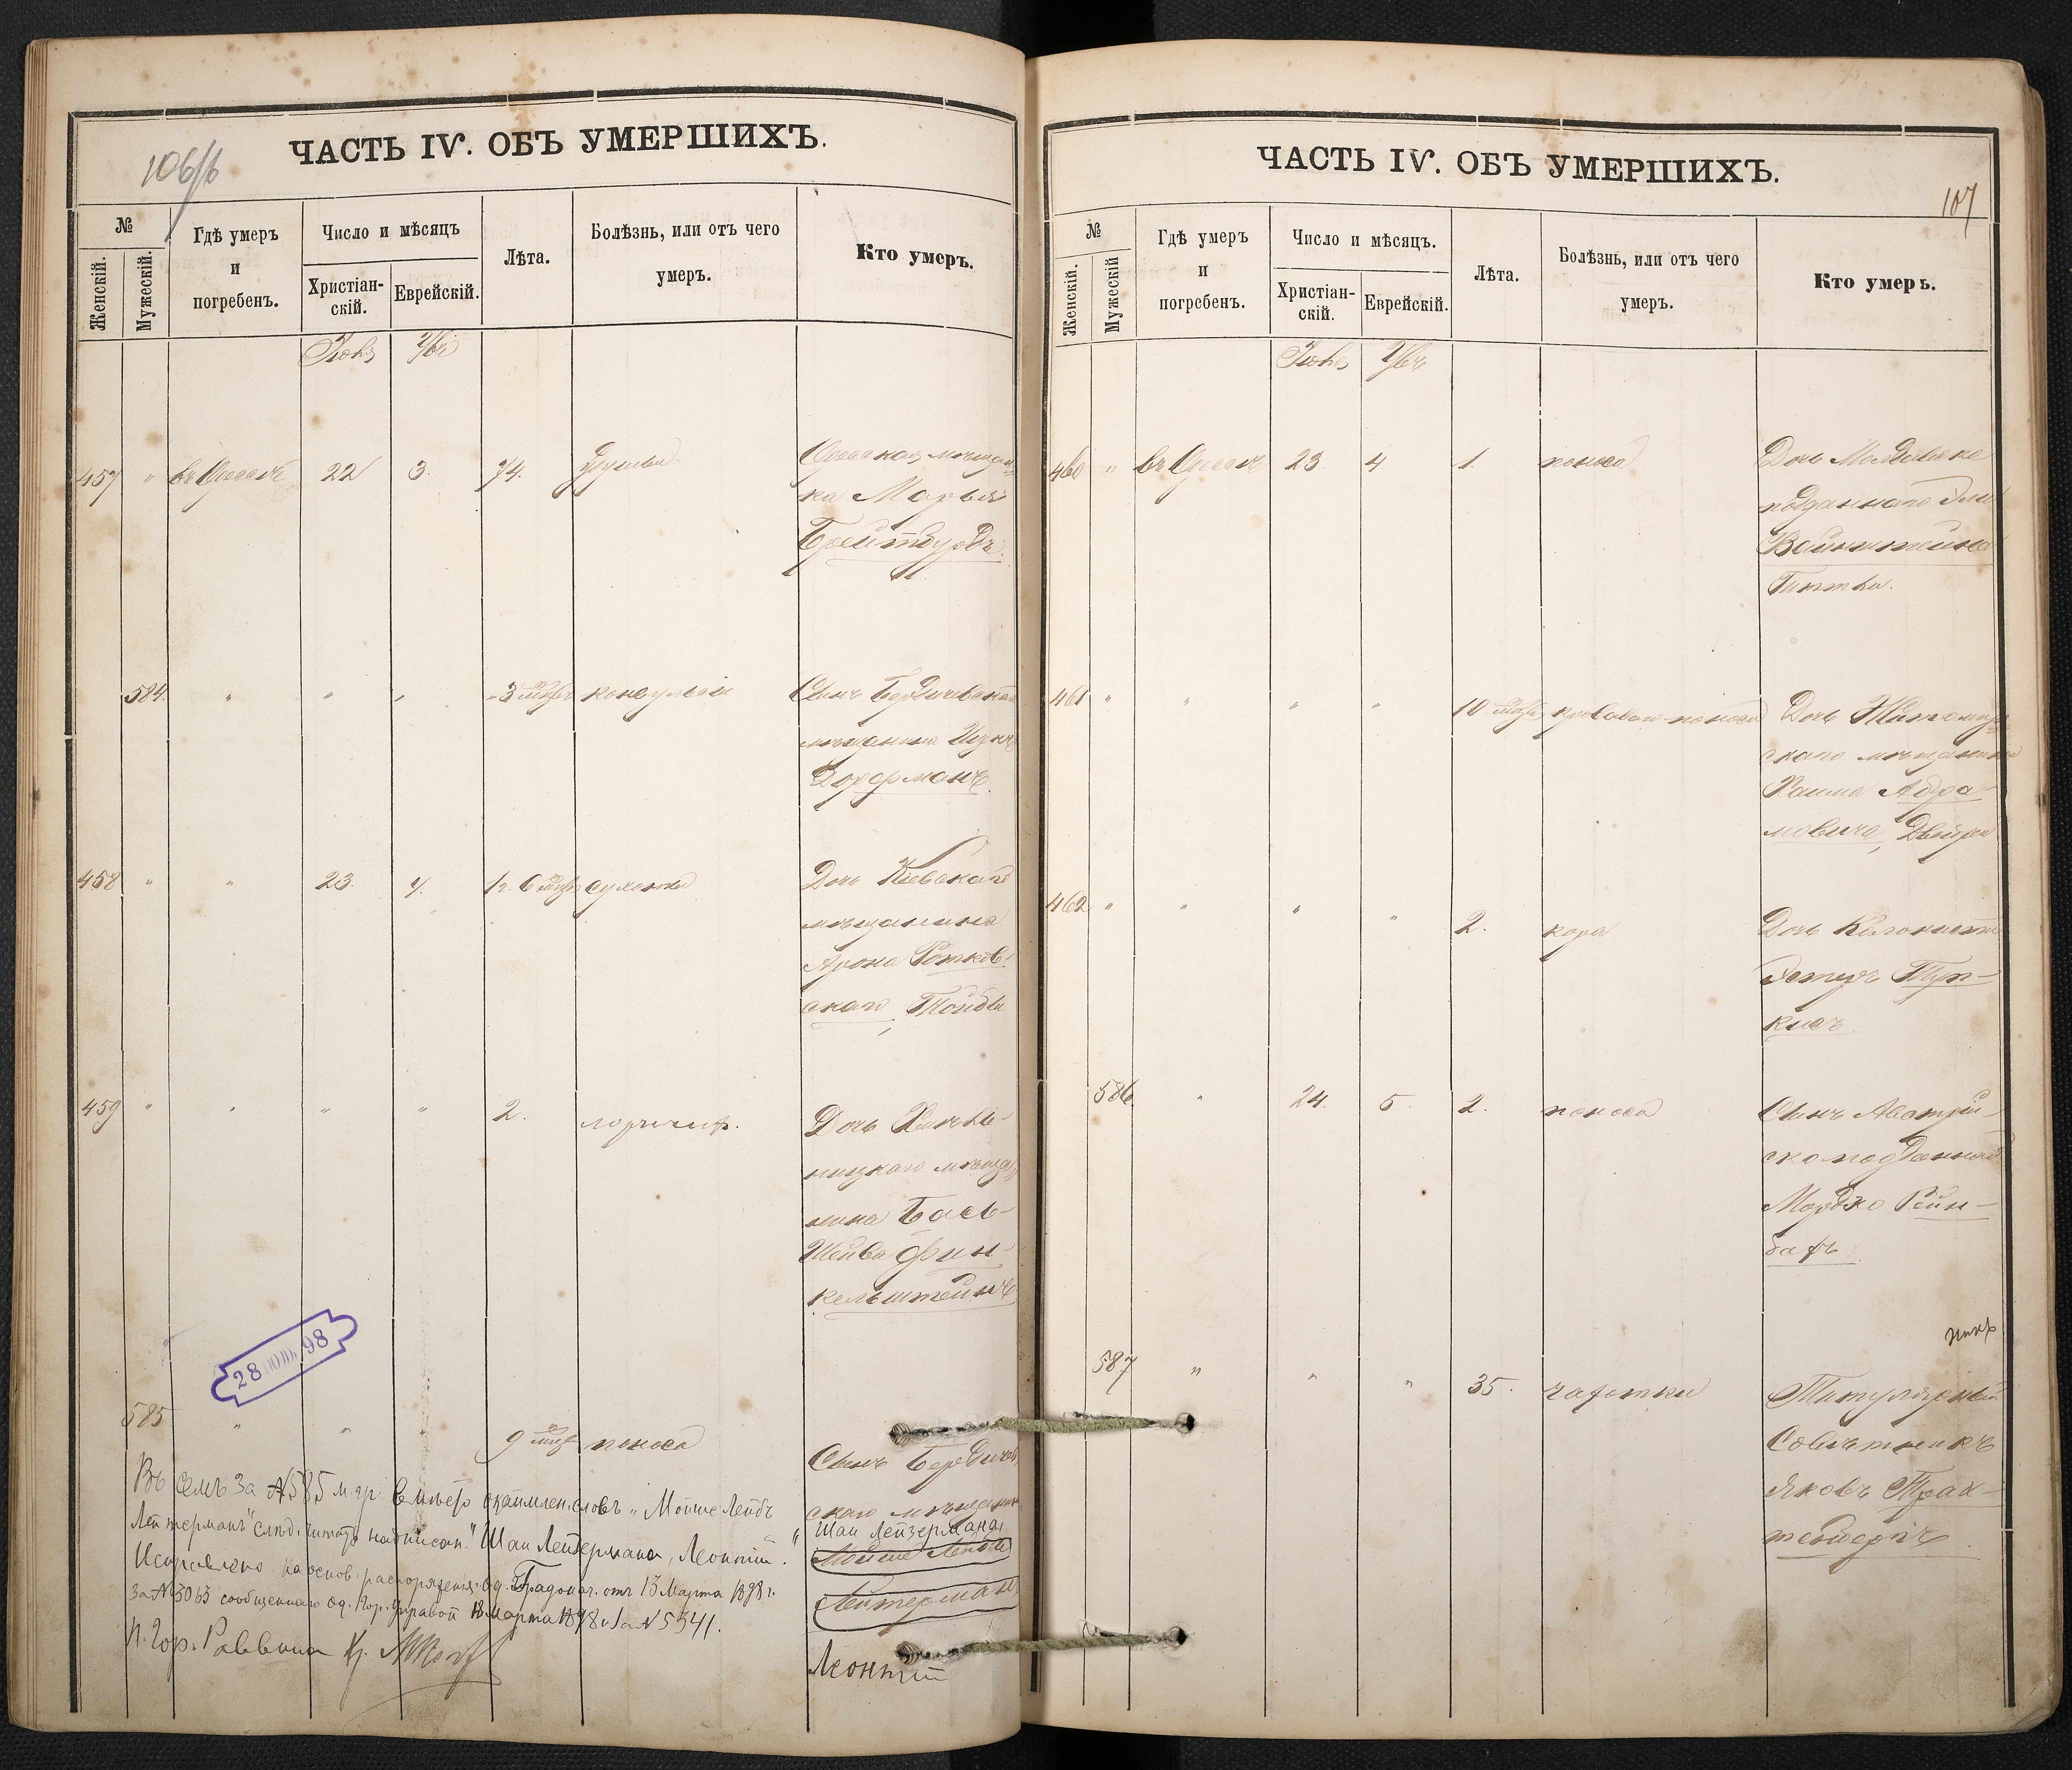 106/б
ЧАСТЬ IV. ОБЪ УМЕРШИХЪ.
№
Женскій.
Мужескій.
Гдѣ умеръ
и
погребенъ.
Число и мѣсяцъ
Христіан-
скій.
Еврейскій.
Лѣта.
Болѣзнь, или отъ чего
умеръ.
Кто умеръ.
457 " въ Одессѣ 22 3. 74. Одесская мѣщан-
ка Марья
584. " " " 3 конвульсіи Сынъ Бердичевскаго
мѣщанина
Дорфманъ.
458 " " 23. 4. 1 г. 6 сухотки Дочь Кіевскаго
мѣщанина
Арона Ротков-
скаго, Тойбы
459 " " " " 2. Дочь
мѣща-
нина Бась-
Шейва Фин-
кельштейнъ
28 ІЮН. 98
585 " " " 9 поноса Сынъ Бердичев
скаго мѣщанина
Шаи Лейзермана,
Мойше Лейбъ
Лейтерманъ
Леонтій
Въ семъ за №585 м. гр. вмѣсто словъ „Мойше Лейбъ
Лейтерманъ" слѣд. читать надписан. „Шаи Лейзермана, Леонтій."
Исправлено на основ. распоряжен. Од. Градонач. отъ 13 Марта 1898 г.
за №3063 сообщеннаго Од. Гор. Управой 18 Марта 1898 г. за №5541.
И. Гор. Раввина
107
ЧАСТЬ IV. ОБЪ УМЕРШИХЪ.
№
Женскій.
Мужескій
Гдѣ умеръ
и
погребенъ.
Число и мѣсяцъ.
Христіан-
скій.
Еврейскій.
Лѣта.
Болѣзнь, или отъ чего
умеръ.
Кто умеръ.
460 " въ Одессѣ 23. 4 1. поноса Дочь
подданнаго
Вайнштейна
Гиттли.
461 " " " " 10 кроваваго поноса Дочь Житомир-
скаго мѣщанина
Хаима Абра-
мовича, Двейры
462 " " " " 2. кори Дочь Колонист
Эстеръ
586 " 24. 5. 2. поноса Сынъ Австрій-
скоподданнаго
Мордко Рейн-
587 " " " 35. чахотки Титулярный
Совѣтникъ
Яковъ Трах-
тенберъ